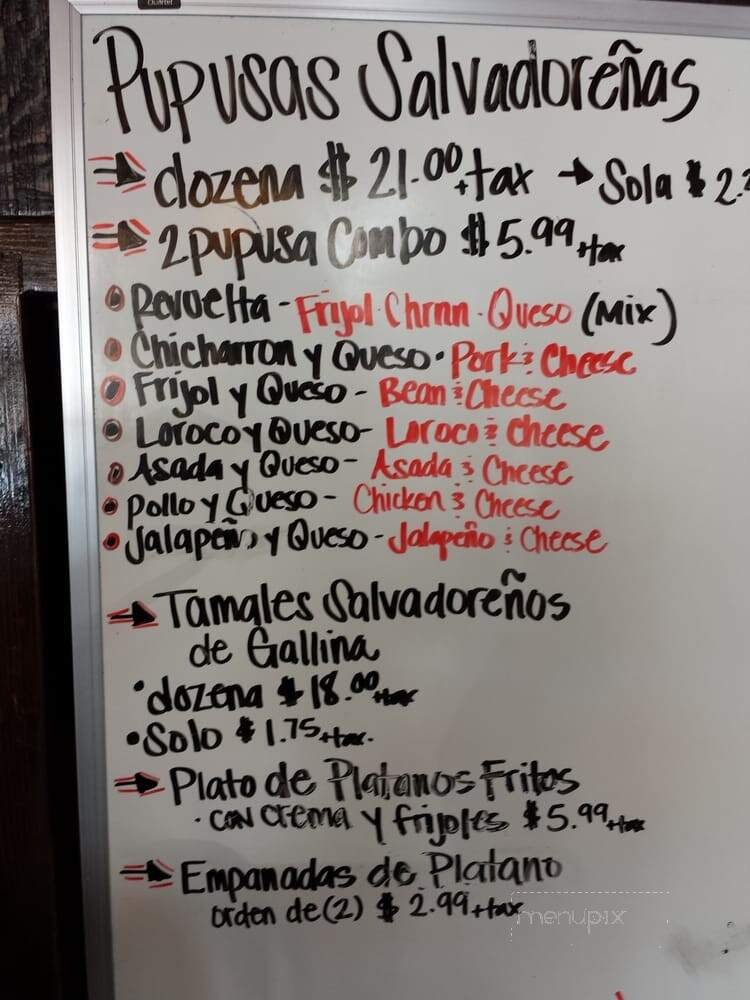 Quartet
Pupusas Salvadoreñas
dozena $ 21.00 +tax → Sola $ 2.
2 pupusa Combo $ 5.99 +tax
Revuelta - Frijol · Chrnn · Queso (Mix)
Chicharron y Queso · Pork & Cheese
Frijol y Queso - Bean & Cheese
Loroco y Queso - Loroco & Cheese
Asada y Queso - Asada & Cheese
Pollo y Queso - Chicken & Cheese
Jalapeño y Queso - Jalapeño & Cheese
Tamales Salvadoreños
de Gallina
• dozena $ 18.00 +tax
• Solo $ 1.75 +tax.
Plato de Platanos Fritos
· con crema y frijoles $ 5.99 +tax
Empanadas de Platano
orden de (2) $ 2.99 +tax
menupix